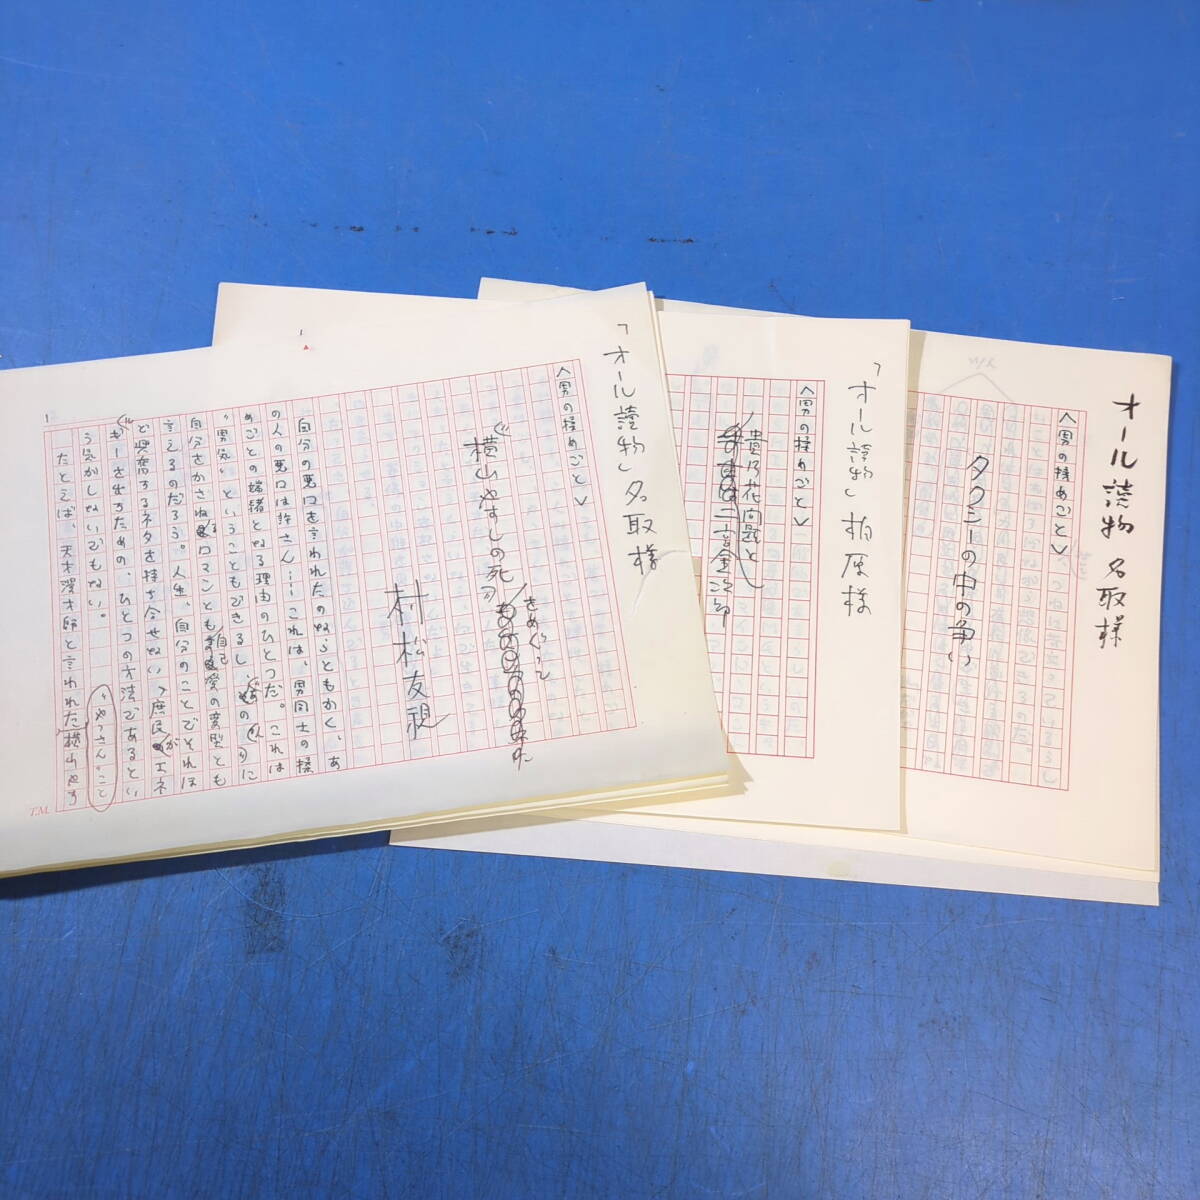 オール読物 名取様
〈男の揉めごと〉
タクシーの中の争い
「オール読物」柏原様
〈男の揉めごと〉
貴乃花問題と
二宮金次郎
「オール讀物」名取様
〈男の揉めごと〉
をめぐって
横山やすしの死
村松友視
自分の悪口を言われたのならともかく、あ
の人の悪口は許さん……これは、男同士の揉
めごとの端緒となる理由のひとつだ。これは
"男気"ということもできるし、
自分をかさねるロマンとも自己愛の変型とも
言えるのだろう。人生、自分のことでそれほ
ど興奮するネタを持ち合せない〈庶民〉がエネ
ルギーを出すための、ひとつの方法であるとい
う気がしないでもない。
"やっさん"こと
たとえば、天才漫才師と言われた横山やす
1
T.M.